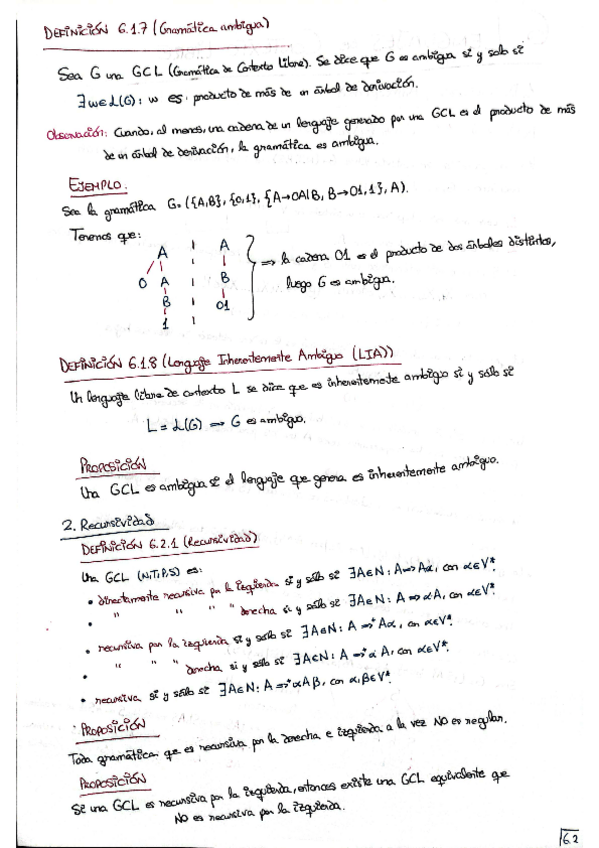 DEFINICIÓN 6.1.7 (Gramática ambigua)
Sea G una GCL (Gramática de Contexto Libre). Se dice que G es ambigua si y solo si
∃ w ∈ L(G): w es producto de más de un árbol de derivación.
Observación: Cuando, al menos, una cadena de un lenguaje generado por una GCL es el producto de más
de un árbol de derivación, la gramática es ambigua.
EJEMPLO.
Sea la gramática G = ({A,B}, {0,1}, {A→0A|B, B→01,1}, A).
Tenemos que:
A | A
0 A | B
B | 01
1 |
⇒ la cadena 01 es el producto de dos árboles distintos,
luego G es ambigua.
DEFINICIÓN 6.1.8 (Lenguaje Inherentemente Ambiguo (LIA))
Un lenguaje libre de contexto L se dice que es inherentemente ambiguo si y sólo si
L = L(G) ⇒ G es ambiguo.
PROPOSICIÓN
Una GCL es ambigua si el lenguaje que genera es inherentemente ambiguo.
2. Recursividad
DEFINICIÓN 6.2.1 (Recursividad)
Una GCL (N,T,P,S) es:
• directamente recursiva por la izquierda si y sólo si ∃A∈N: A→Aα, con α∈V*.
• " " " " derecha si y sólo si ∃A∈N: A→αA, con α∈V*.
• recursiva por la izquierda si y sólo si ∃A∈N: A⇒⁺Aα, con α∈V*.
• " " " derecha si y sólo si ∃A∈N: A⇒⁺αA, con α∈V*.
• recursiva si y sólo si ∃A∈N: A⇒⁺αAβ, con α,β∈V*.
PROPOSICIÓN
Toda gramática que es recursiva por la derecha e izquierda a la vez NO es regular.
PROPOSICIÓN
Si una GCL es recursiva por la izquierda, entonces existe una GCL equivalente que
NO es recursiva por la izquierda.
6.2